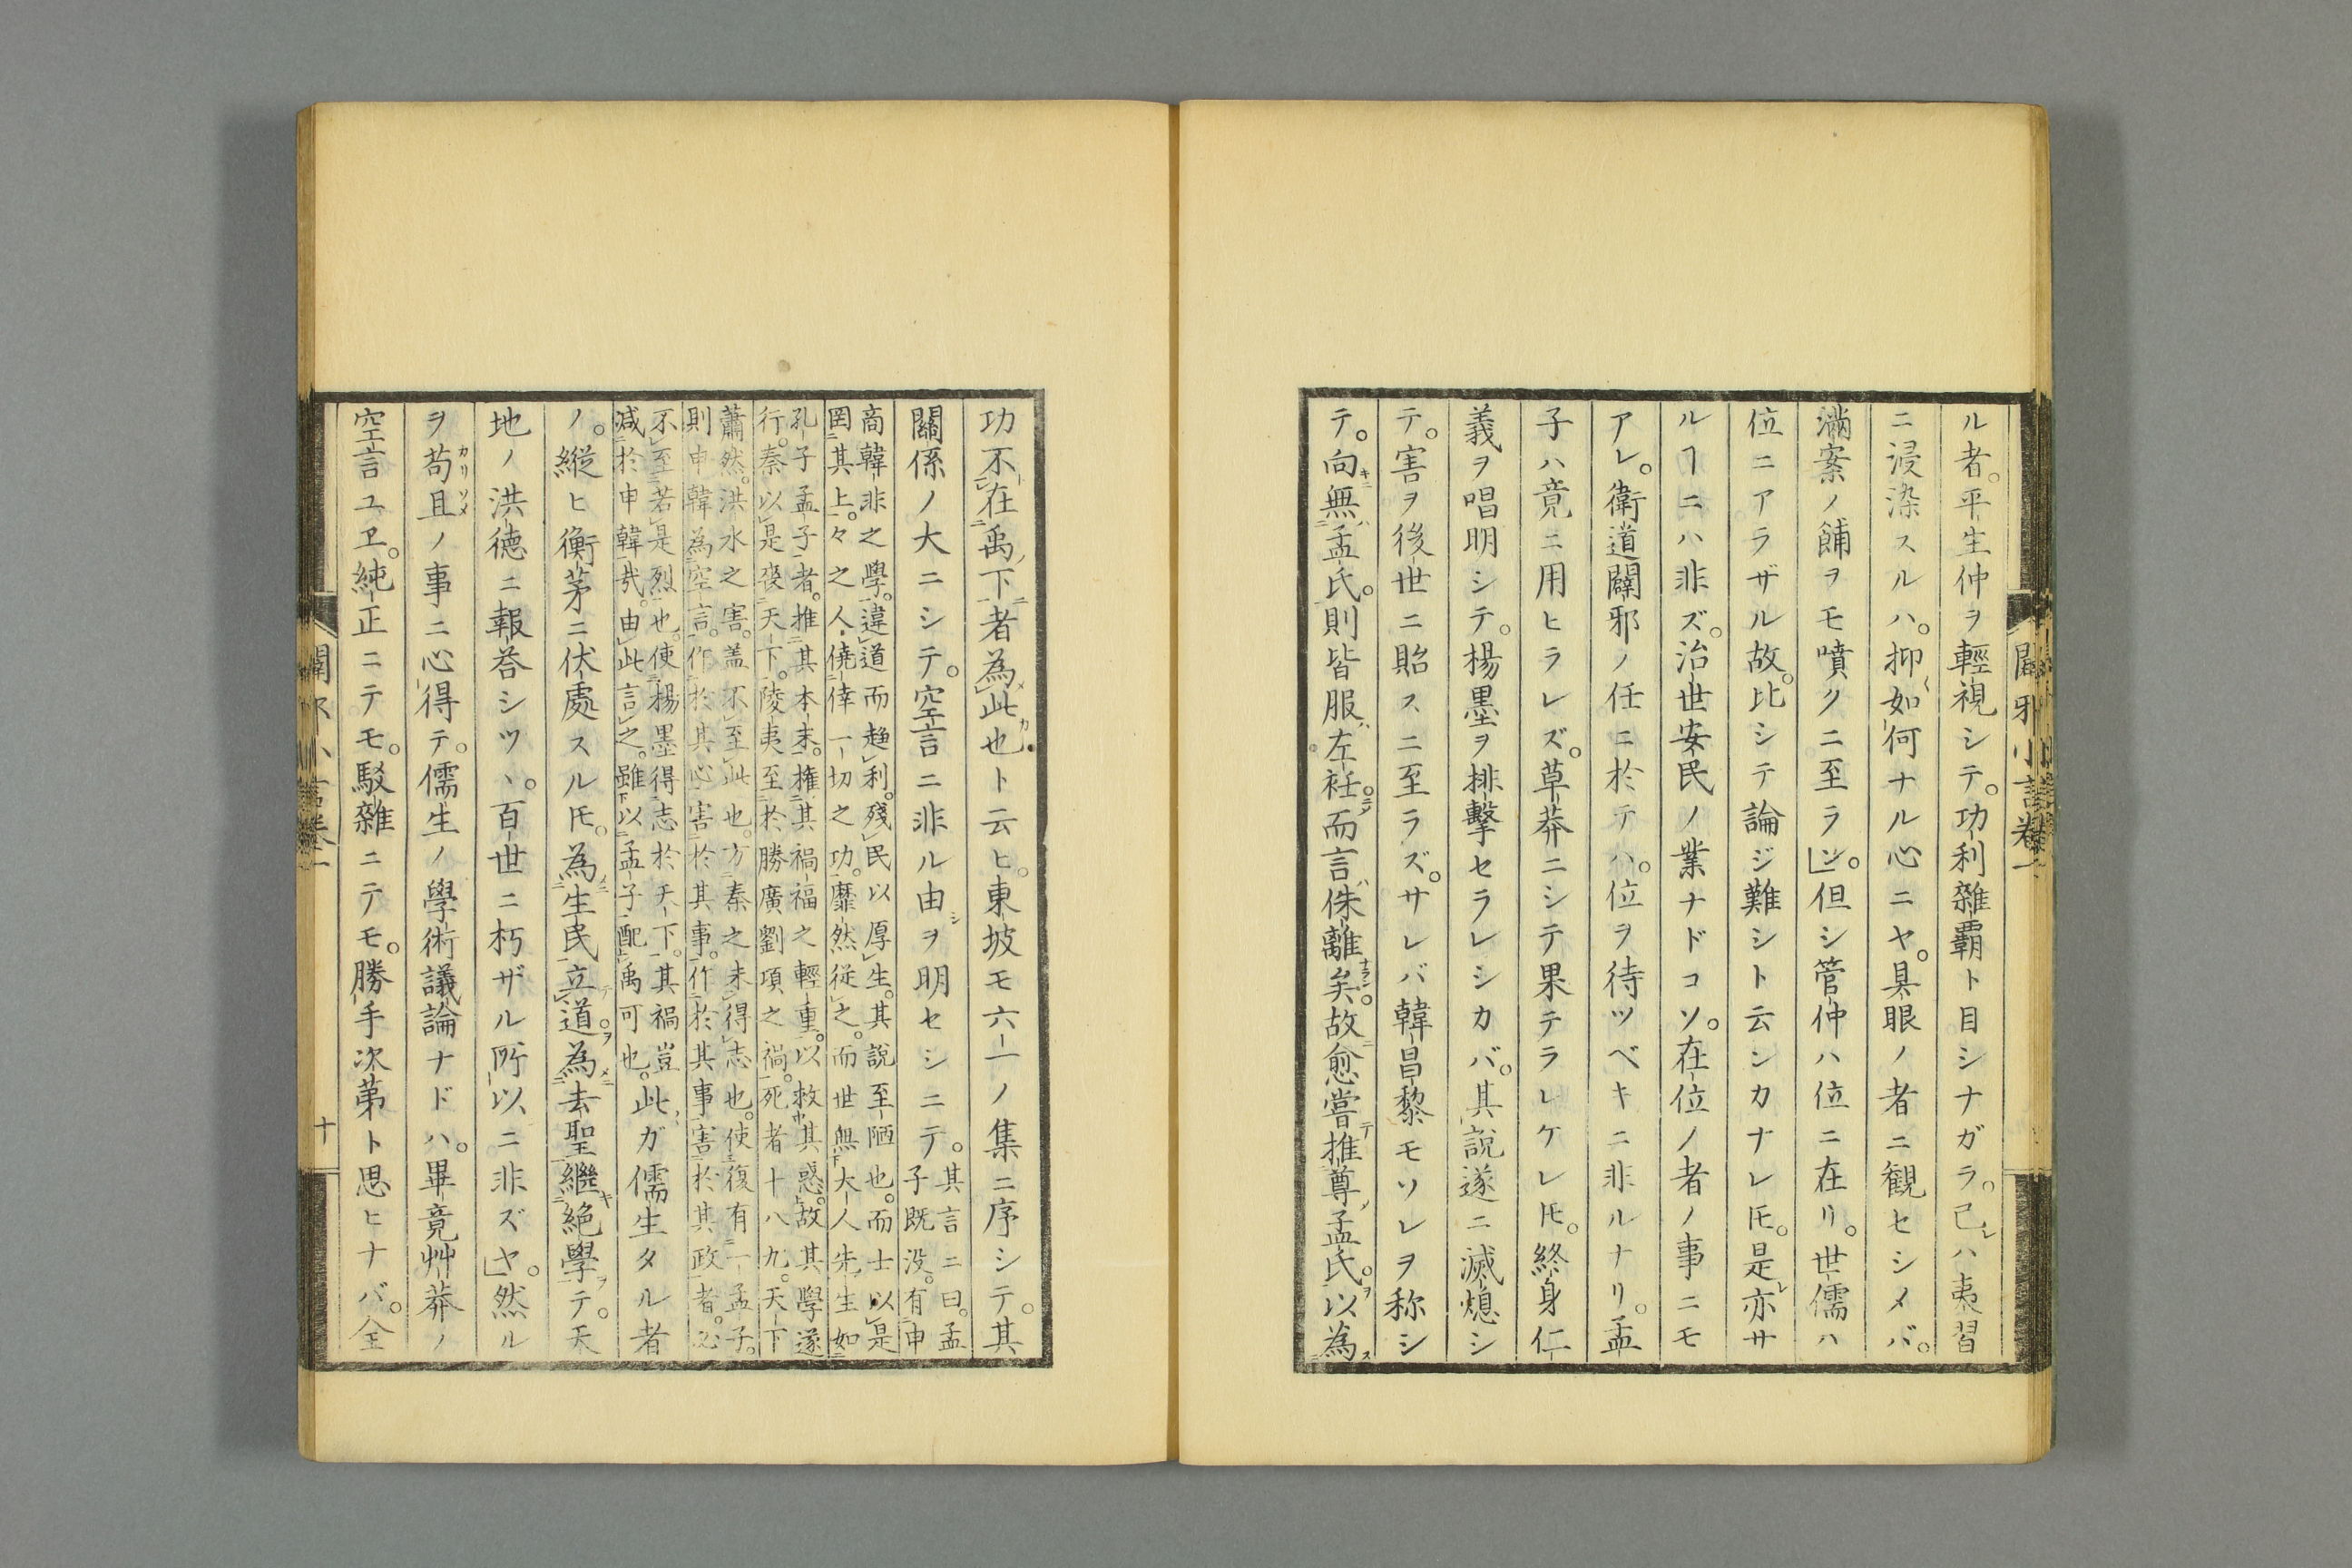 闢邪小言卷一
ル者。平生仲ヲ輕視シテ。功利雜霸ト目シナガラ。己レハ夷習
ニ浸染スルハ。抑如何ナル心ニヤ。具眼ノ者ニ觀セシメバ。
滿案ノ餔ヲモ噴クニ至ラン。但シ管仲ハ位ニ在リ。世儒ハ
位ニアラザル故。比シテ論ジ難シト云ンカナレ𪜈。是レ亦サ
ルヿニハ非ズ。治世安民ノ業ナドコソ。在位ノ者ノ事ニモ
アレ。衛道闢邪ノ任ニ於テハ。位ヲ待ツベキニ非ルナリ。孟
子ハ竟ニ用ヒラレズ。草莽ニシテ果テラレケレ𪜈。終身仁
義ヲ唱明シテ。楊墨ヲ排擊セラレシカバ。其說遂ニ滅熄シ
テ。害ヲ後世ニ貽スニ至ラズ。サレバ韓昌黎モソレヲ称シ
テ。向キニ無ハ孟氏。則皆服ハ左衽。而言ハ侏離矣。故ニ愈嘗テ推尊ノ孟氏。以為ス
功不在禹ノ下ニ者為メ此カ也ト云ヒ。東坡モ六一ノ集ニ序シテ。其
關係ノ大ニシテ。空言ニ非ル由シヲ明セシニテ。其言ニ曰。孟
子既没。有申
商韓非之學。違道而趨利。殘民以厚生。其說至陋也。而士以是
罔其上。々之人僥倖一切之功。靡然從之。而世無大人先生如
孔子孟子者。推其本末。權其禍福之輕重。以救其惑。故其學遂
行。秦以是喪天下。陵夷至於勝廣劉項之禍。死者十八九。天下
蕭然。洪水之害。盖不至此也。方秦之未得志也。使復有一孟子。
則申韓為空言。作於其心害於其事。作於其事害於其政者。必
不至若是烈也。使楊墨得志於天下。其禍豈
減於申韓哉。由此言之。雖以孟子配禹可也。此ガ儒生タル者
ノ。縱ヒ衡茅ニ伏處スル𪜈。為メニ生民立テ道ヲ。為メニ去聖繼キ絕學ヲテ。天
地ノ洪德ニ報荅シツヽ。百世ニ朽ザル所以ニ非ズヤ。然ル
ヲ苟且カリソメノ事ニ心得テ。儒生ノ學術議論ナドハ。畢竟艸莽ノ
空言ユヱ。純正ニテモ。駁雜ニテモ。勝手次第ト思ヒナバ。全
闢邪小言卷一
十